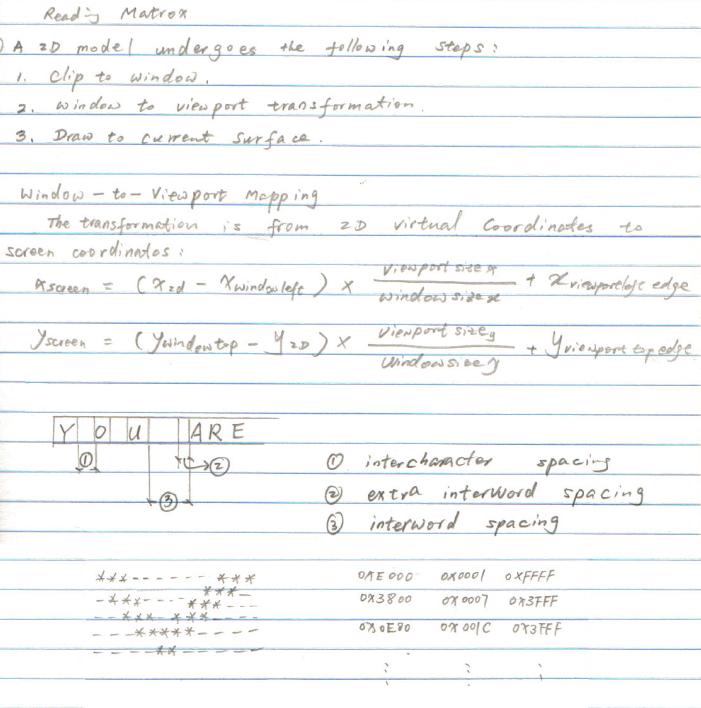 Reading Matrox
A 2D model undergoes the following steps:
1. Clip to window.
2. window to viewport transformation.
3. Draw to current surface.
Window-to-Viewport Mapping
The transformation is from 2D virtual Coordinates to
screen coordinates:
Xscreen = (X2d - Xwindowleft) × viewport size x / window size x + Xviewportleft edge
Yscreen = (Ywindowtop - Y2D) × viewport size y / window size y + Yviewport top edge
Y O U ARE
① ②
③
① intercharacter spacing
② extra interword spacing
③ interword spacing
***------*** 0XE000 0X0001 0XFFFF
***---
-***--- 0X3800 0X0007 0X3FFF
***---
--*** ***
---*****---- 0X0E80 0X001C 0X3FFF
-----**----